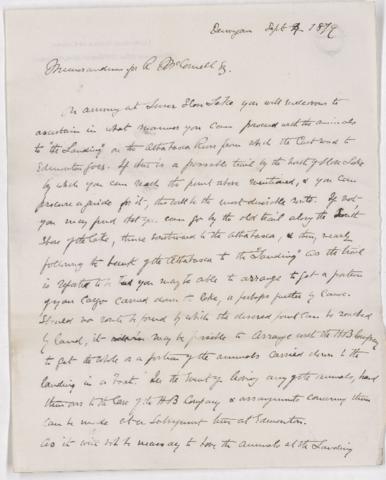 Dunvegan Sept 4 1879
Memorandum for R. G. McConnell Esq.
On arriving at Lesser Slave Lake you will endeavour to
ascertain in what manner you can proceed with the animals
to "the Landing" on the Athabasca River from which the Cart road to
Edmonton goes. If there is a possible trail by the north of Slave Lake
by which you can reach the point above mentioned, & you can
procure a guide for it, this will be the most desirable route. If not
you may find that you can go by the old trail along the South
Shore of the Lake, thence westward to the Athabasca, & then nearly
following the bank of the Athabasca to the "Landing" As this trail
is reported to be bad you may be able to arrange to get a portion
of your Cargo carried down the Lake, & perhaps further by Canoe.
Should no route be found by which the desired point can be reached
by land, it may be possible to arrange with the H B Company
to get the whole or a portion of the animals carried down to the
landing in a "boat". In the event of leaving any of the animals, hand
them over to the Care of the H B Company & arrangements concerning them
can be made at a subsequent time at Edmonton.
As it will not be necessary to have the animals at the Landing